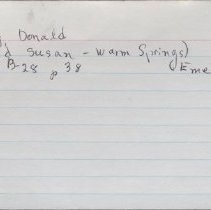 Donald
d Susan - Warm Springs)
B-28 p 38 (Eme